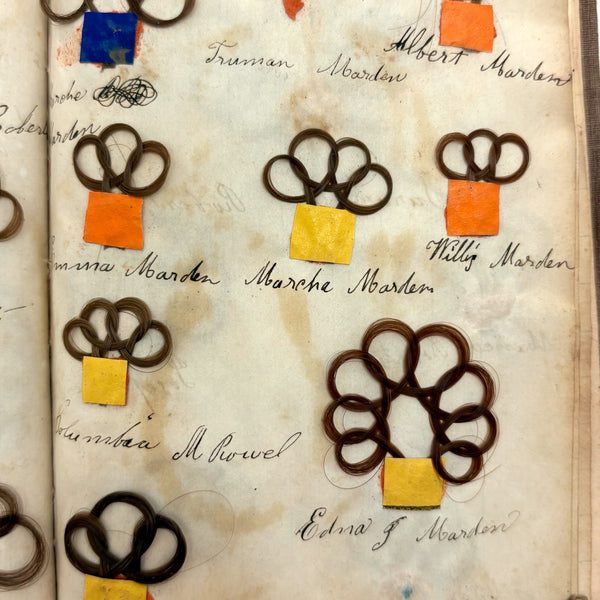 Truman Marden
Albert Marden
Marden
Emma Marden
Marcha Marden
Willy Marden
Columbia M Rowel
Edna J Marden